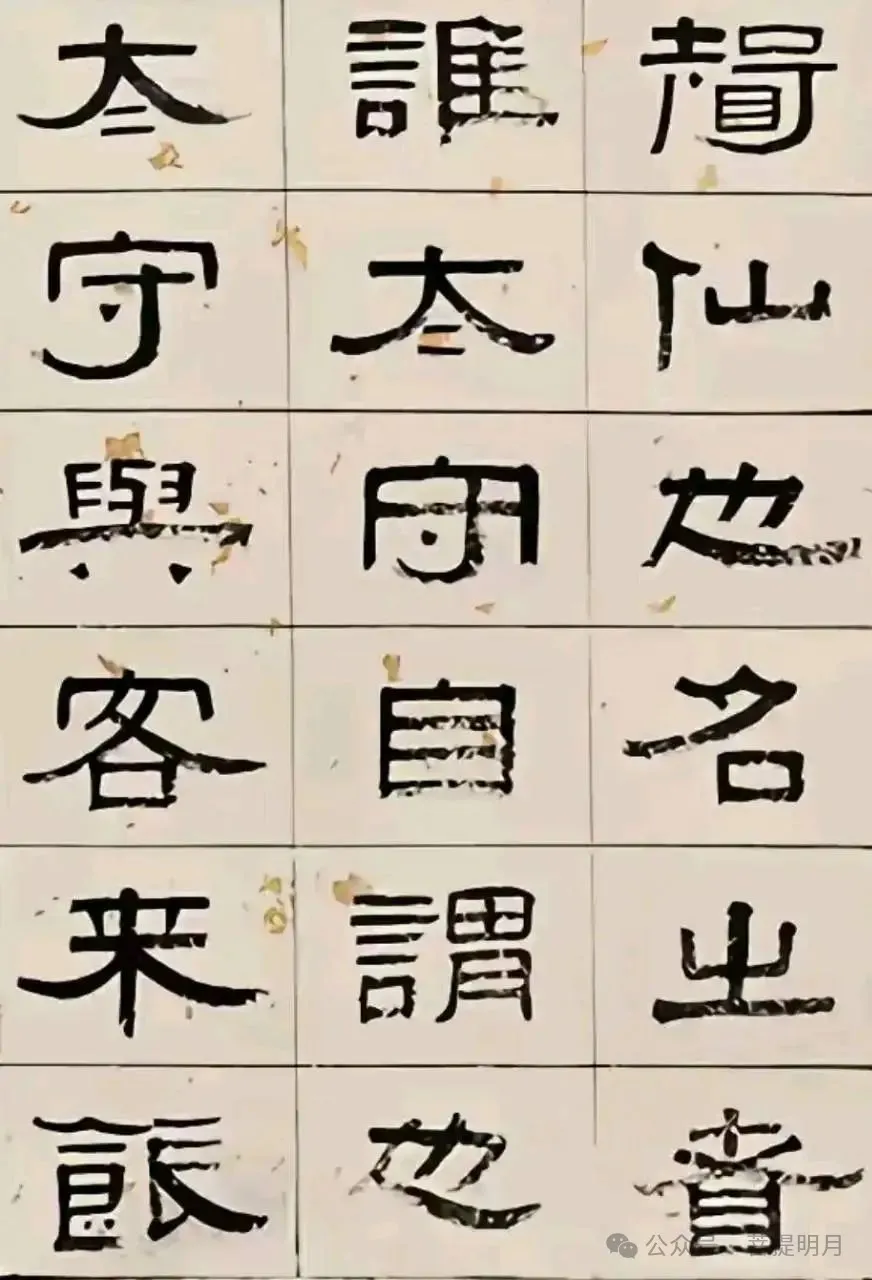 智仙也名之者
誰太守自謂也
太守與客来飲
公众号·菩提明月